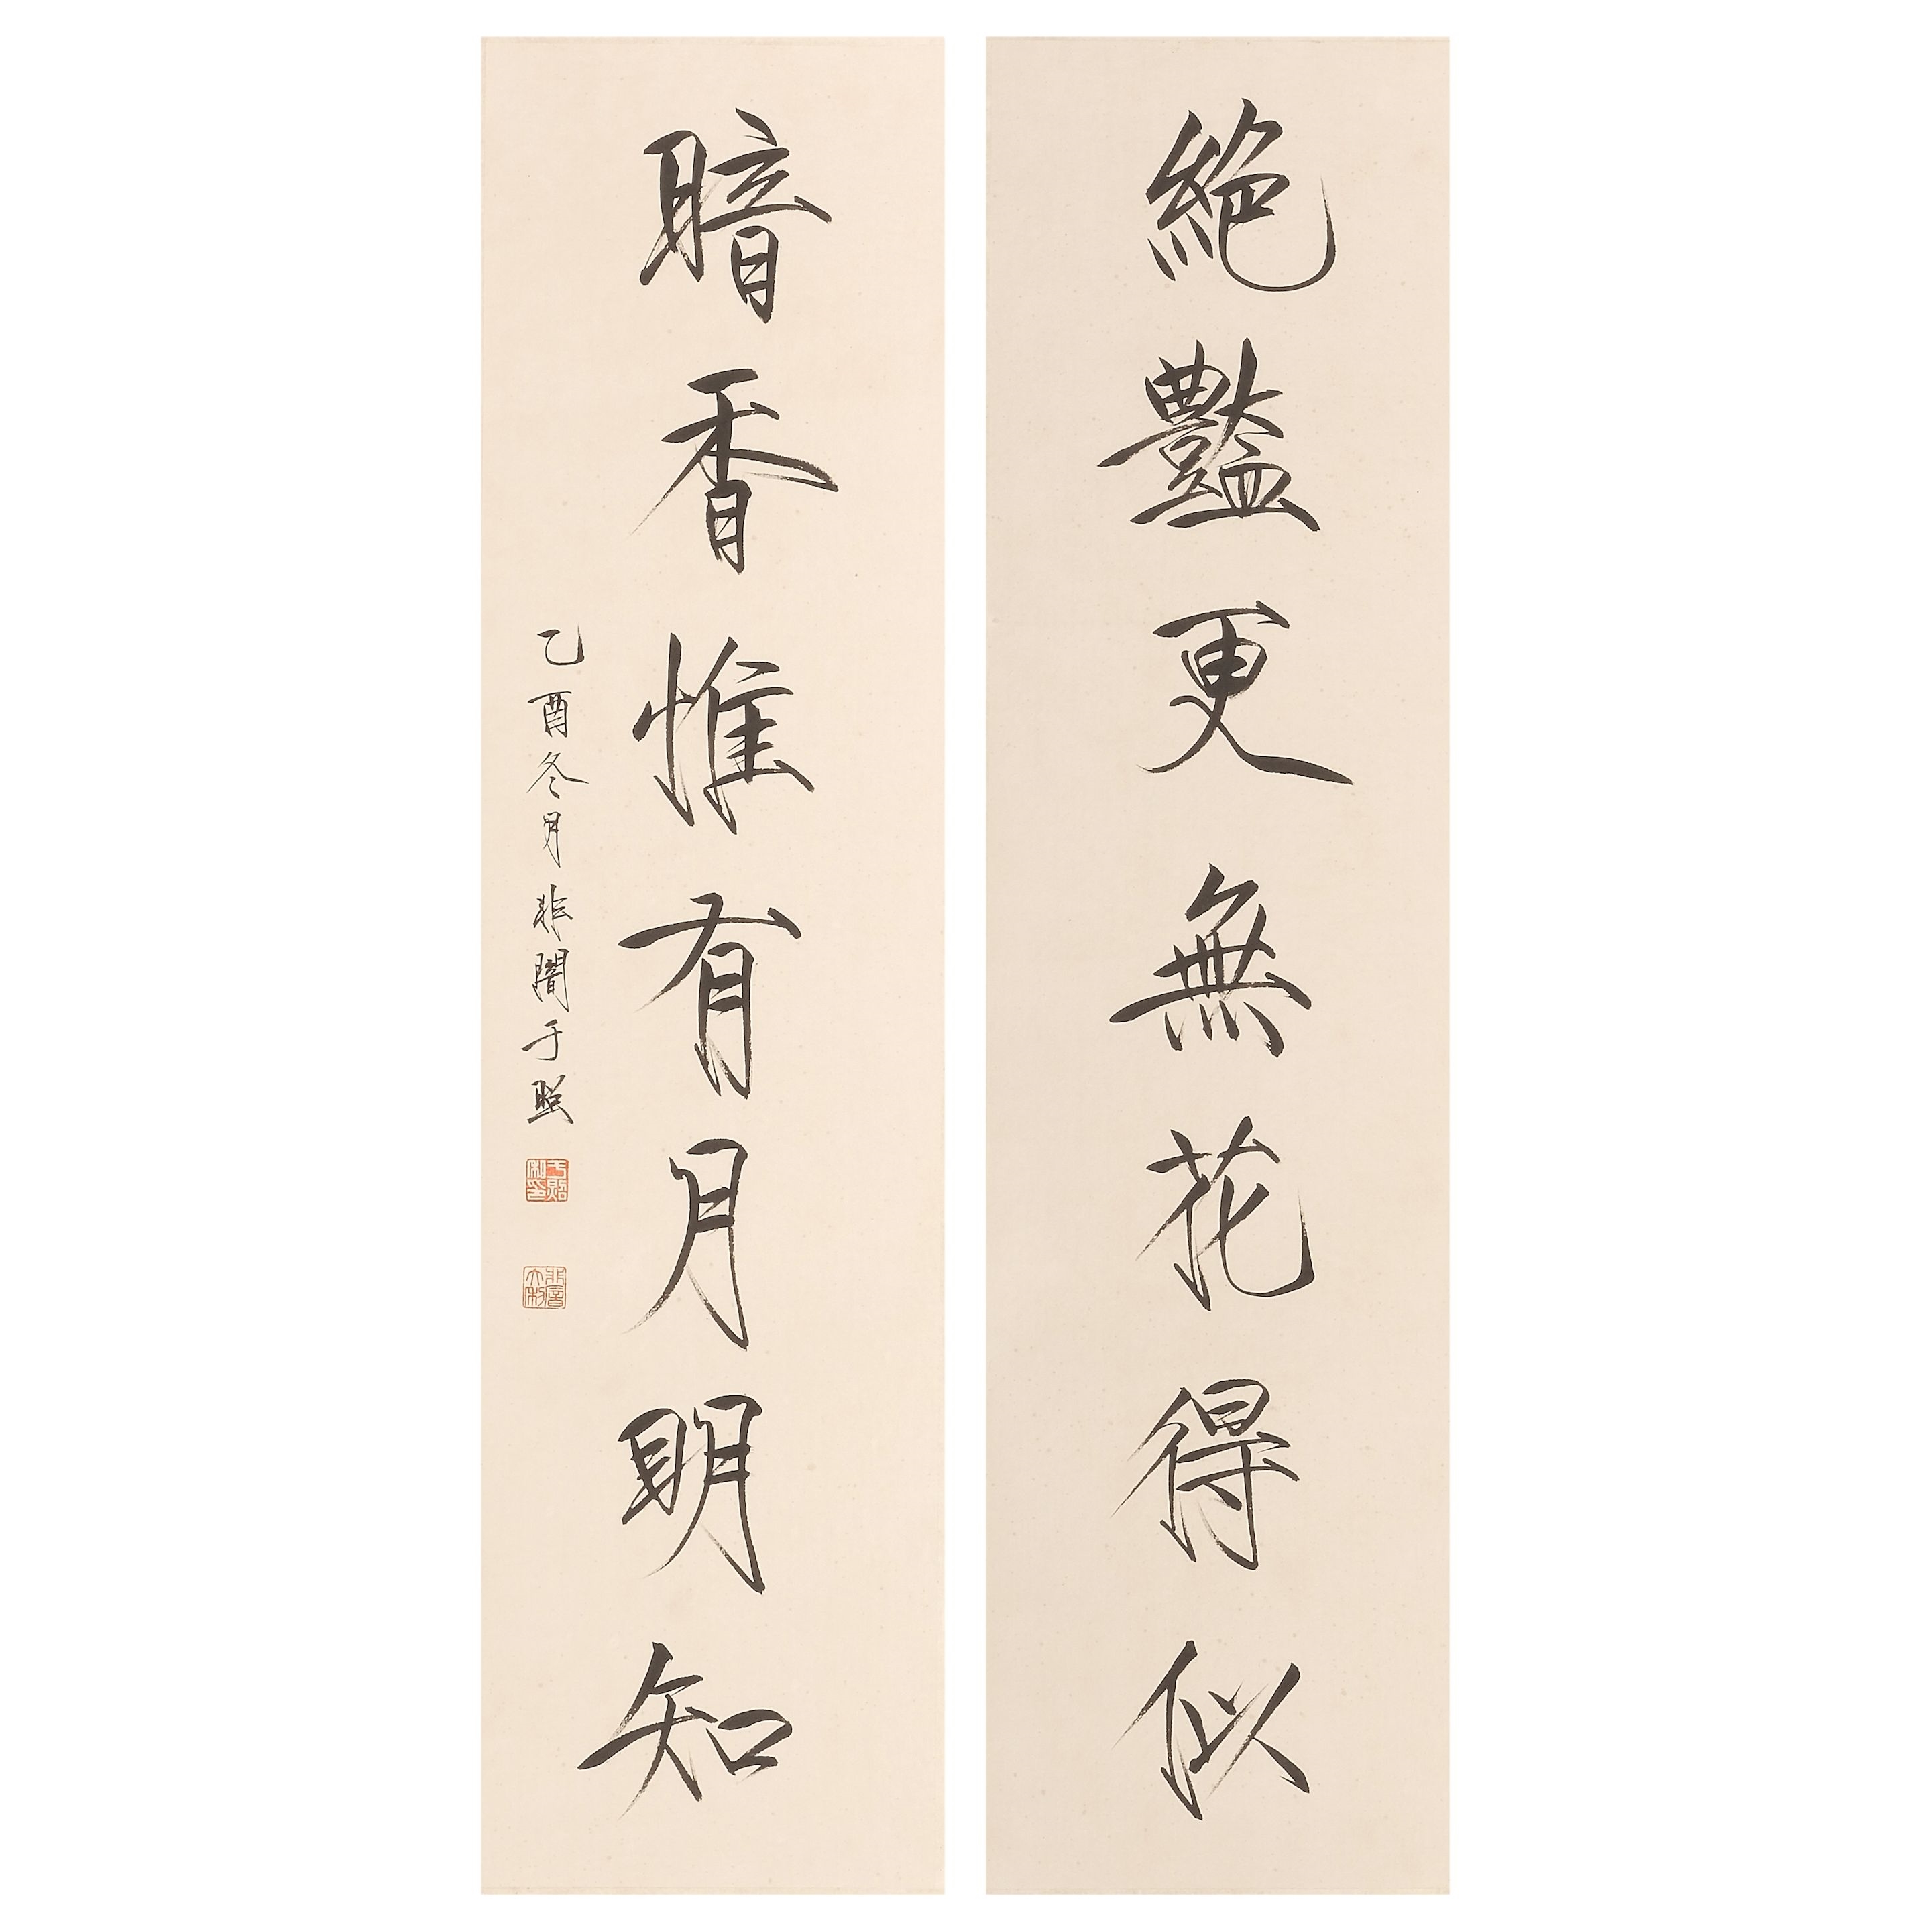 絶豔更無花得似
暗香惟有月明知
乙酉冬月非闇于照